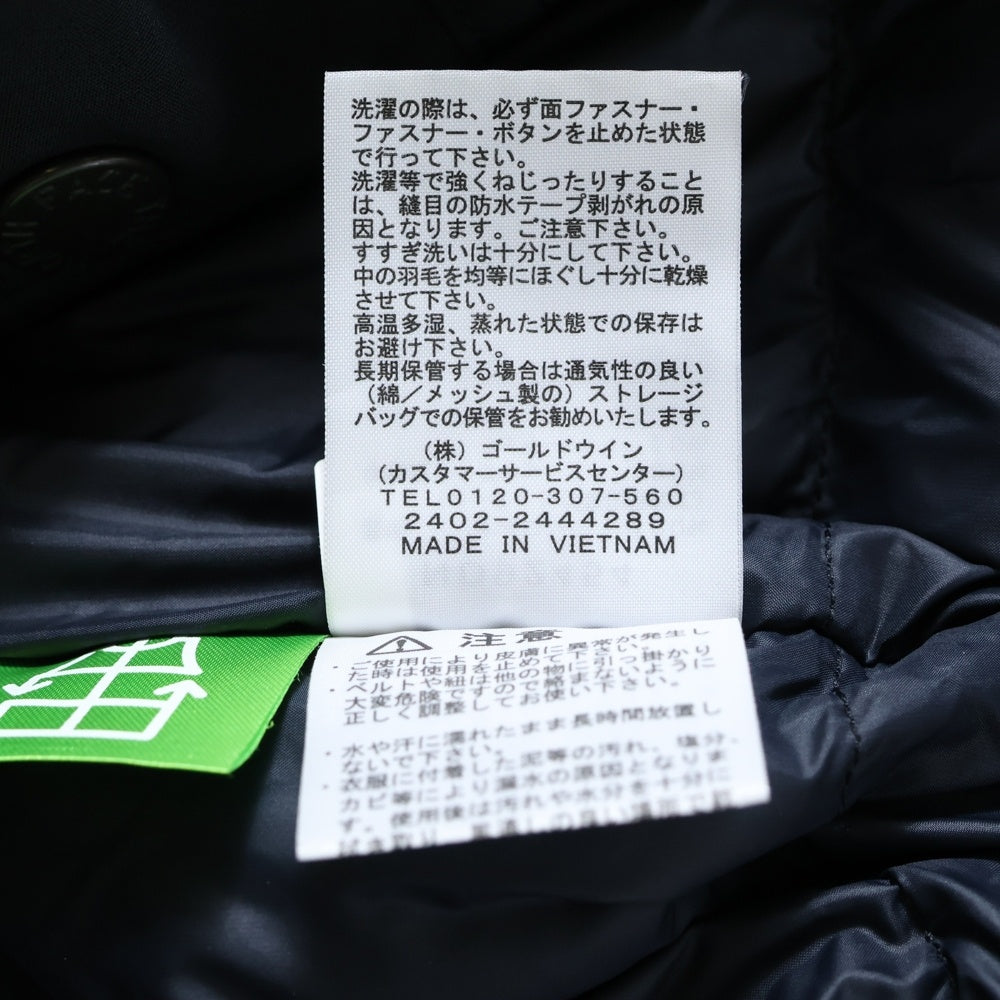 洗濯の際は、必ず面ファスナー・
ファスナー・ボタンを止めた状態
で行って下さい。
洗濯等で強くねじったりすること
は、縫目の防水テープ剥がれの原
因となります。ご注意下さい。
すすぎ洗いは十分にして下さい。
中の羽毛を均等にほぐし十分に乾燥
させて下さい。
高温多湿、蒸れた状態での保存は
お避け下さい。
長期保管する場合は通気性の良い
（綿／メッシュ製の）ストレージ
バッグでの保管をお勧めいたします。
（株）ゴールドウイン
（カスタマーサービスセンター）
TEL0120-307-560
2402-2444289
MADE IN VIETNAM
注意
・ご使用により皮膚に異常が発生し
た時は使用を止めて下さい。
・ベルトや紐は他の物に引っ掛かり
大変危険ですので絡まないように
正しく調整してお使い下さい。
・水や汗に濡れたまま長時間放置し
ないで下さい。
・衣服に付着した泥等の汚れ、塩分、
カビ等により漏水の原因となりま
す。使用後は汚れや水分を十分に
FACE